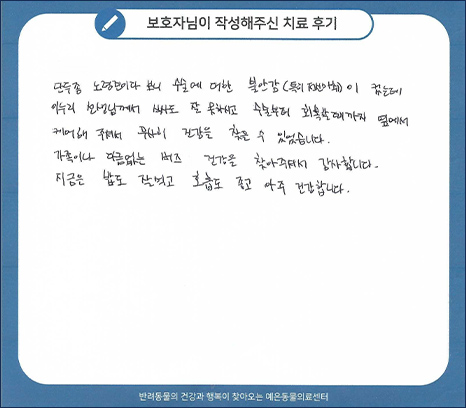 보호자님이 작성해주신 치료 후기
노령견이다 보니 수술에 대한 불안감(특히 전신마취)이 컸는데
선생님께서 잘 수술부터 회복할때까지 옆에서
케어해 주셔서 무사히 건강을 찾을 수 있었습니다.
가족이나 다름없는 버즈 건강을 찾아주셔서 감사합니다.
지금은 밥도 잘먹고 호흡도 좋고 아주 건강합니다.
반려동물의 건강과 행복이 찾아오는 예은동물의료센터